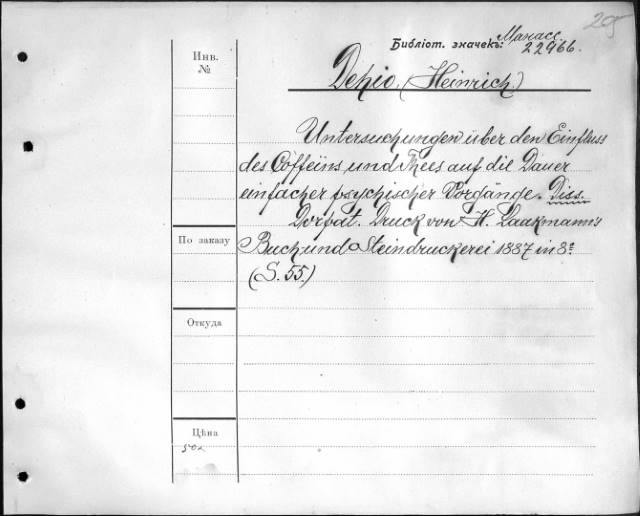 29
Библіот. значекъ: Манасс.
22966.
Инв.
№
Dehio. (Heinrich.)
Untersuchungen über den Einfluss
des Coffeïns und Thees auf die Dauer
einfacher psychischer Vorgänge. Diss.
Dorpat. Druck von H. Laakmann's
По заказу
Buch und Steindruckerei 1887 in 8º
(S. 55.)
Откуда
Цѣна
50к